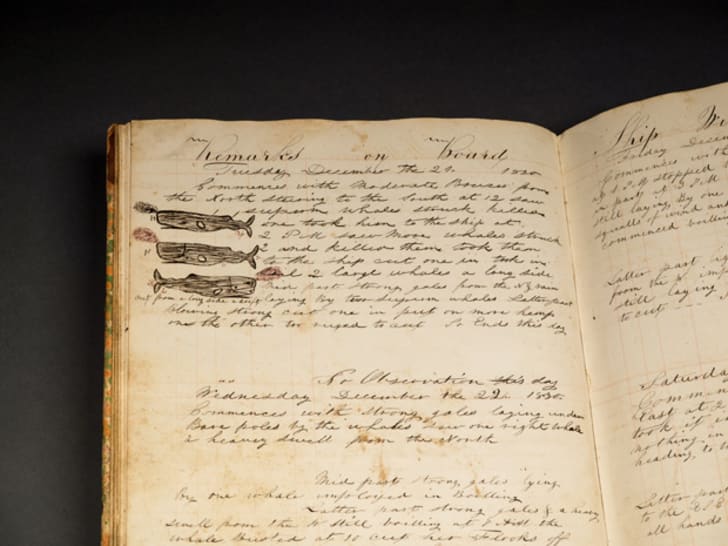 Remarks on Board
Tuesday December the 21. 1830
Commences with Moderate Breeses from
the North steering to the South at 12 saw
sperm whales struck killed
one took him to the ship at
2 PM saw More whales struck
2 and killed them took them
to the ship cut one in took in
2 large whales a long side
Mid part Strong gales from the
laying By two sperm whales Latter part
blowing strong cut one in part on more
one the other too ruged to cut So Ends this day
No Observation this day
Wednesday December the 22. 1830.
Commences with strong gales laying under
Bare poles by the whales saw one right whale
a heavy swell from the North
Mid part strong gales lying
by one whale imployed in Boilling
Latter part strong gales & a heavy
swell from the still boilling at the
whale at 10 cut her of
Ship
Friday
Commences with
stopped
part at 3 P.M
still laying By one
squalls of wind and
commenced boiling
Latter part
from the
still laying
to cut
Saturda
Commen
East at 2
took it
nothing in
heading to
Latter part
to the
all hands